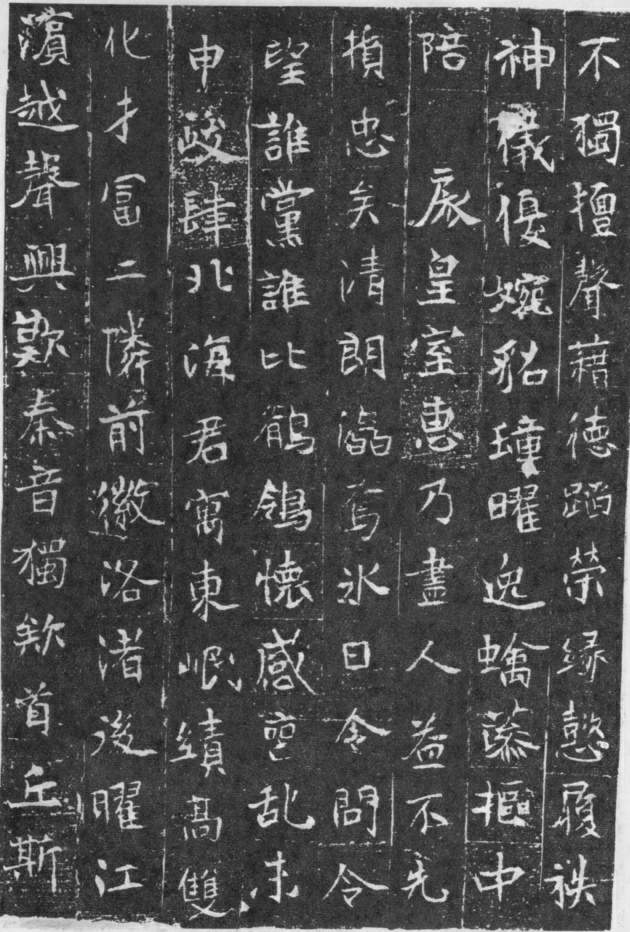 不獨擅聲藉德蹈榮緣懿履袟
神儀優婉貂璫曜逸蟬蕤樞中
陪 扆皇室惠乃盡人益不先
損忠矣清朗潏焉氷日令問令
望誰黨誰比鶺鴒懷感喪乱未
申踆肆北海君寓東岷績高雙
化才冨二隣前徽洛渚後曜江
濵越聲興歎秦音獨欸首丘斯